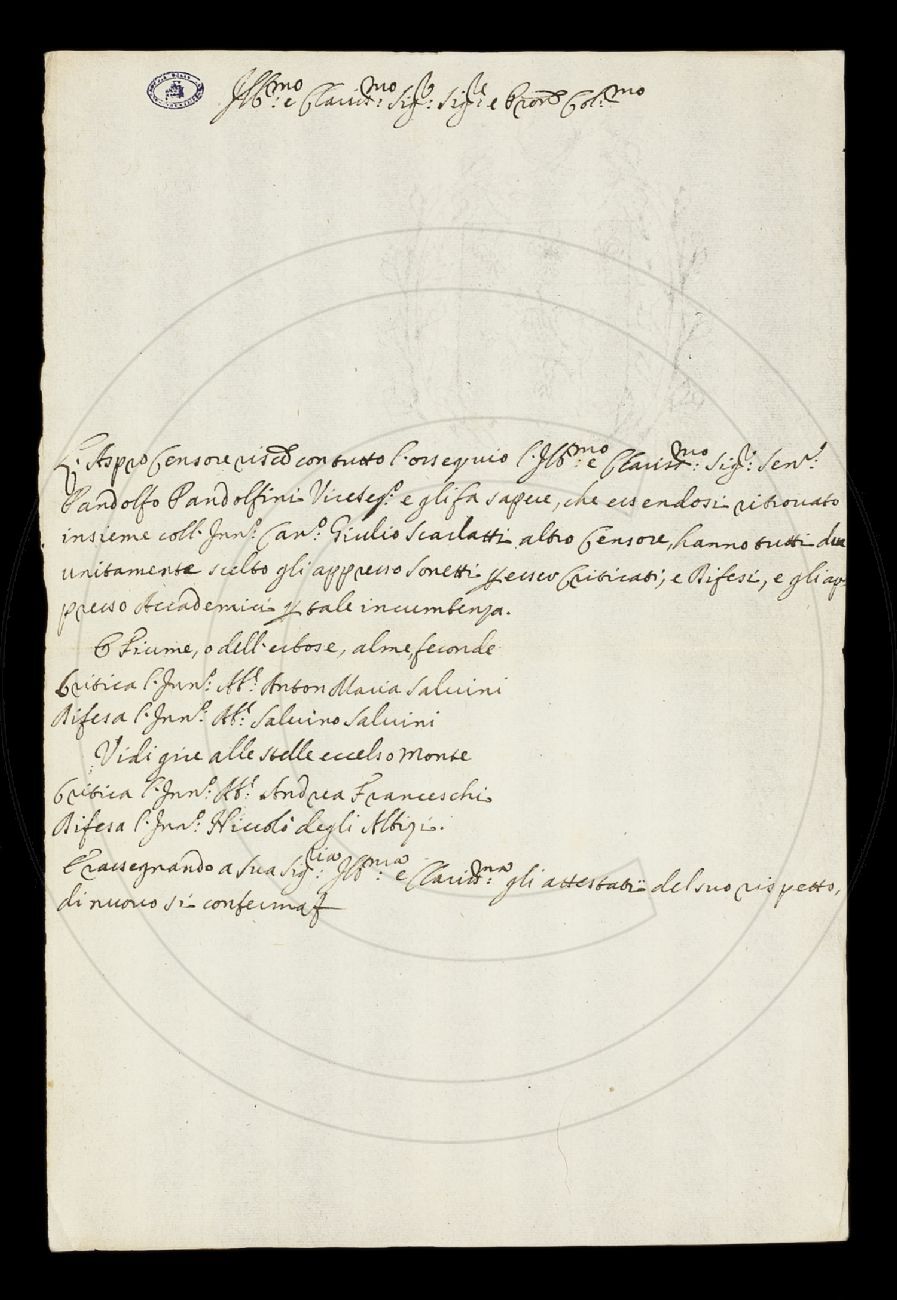 Ill:mo e Clariss:mo Sig:r Sig:re e Pron Col:mo
L'Aspro Censore con tutto l'ossequio l'Ill:mo e Clariss:mo Sig:r Sen:r
Pandolfo Pandolfini Viceseg:o e gli fa sapere, che essendosi ritrovato
insieme coll'Inn:o Can:o Giulio Scarlatti altro Censore, hanno tutti due
unitamente scelto gli appresso Sonetti p esser Criticati, e Difesi, e gli ap-
presso Accademici p tale incumbenza.
O Fiume, o dell'erbose, alme, feconde
Critica l'Inn:o Ab:e Anton Maria Salvini
Difesa l'Inn:o Ab:e Salvino Salvini
Vidi gire alle stelle eccelso Monte
Critica l'Inn:o Ab:e Andrea Franceschi
Difesa l'Inn:o Niccolò degli Albizi.
E rassegnando a Sua Sig:ria Ill:ma e Clariss:ma gli attestati del suo rispetto,
di nuovo si conferma